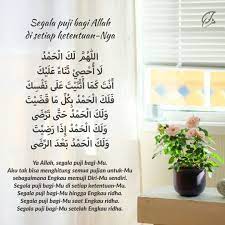 Segala puji bagi Allah
di setiap ketentuan-Nya
اللَّهُمَّ لَكَ الْحَمْدُ
لَا أُحْصِيْ ثَنَاءً عَلَيْكَ
أَنْتَ كَمَا أَثْنَيْتَ عَلَى نَفْسِكَ
فَلَكَ الْحَمْدُ بِكُلِّ مَا قَضَيْتَ
وَلَكَ الْحَمْدُ حَتَّى تَرْضَى
وَلَكَ الْحَمْدُ إِذَا رَضِيْتَ
وَلَكَ الْحَمْدُ بَعْدَ الرِّضَى
Ya Allah, segala puji bagi-Mu.
Aku tak bisa menghitung semua pujian untuk-Mu
sebagaimana Engkau memuji Diri-Mu sendiri.
Segala puji bagi-Mu di setiap ketentuan-Mu.
Segala puji bagi-Mu hingga Engkau ridha.
Segala puji bagi-Mu saat Engkau ridha.
Segala puji bagi-Mu setelah Engkau ridha.